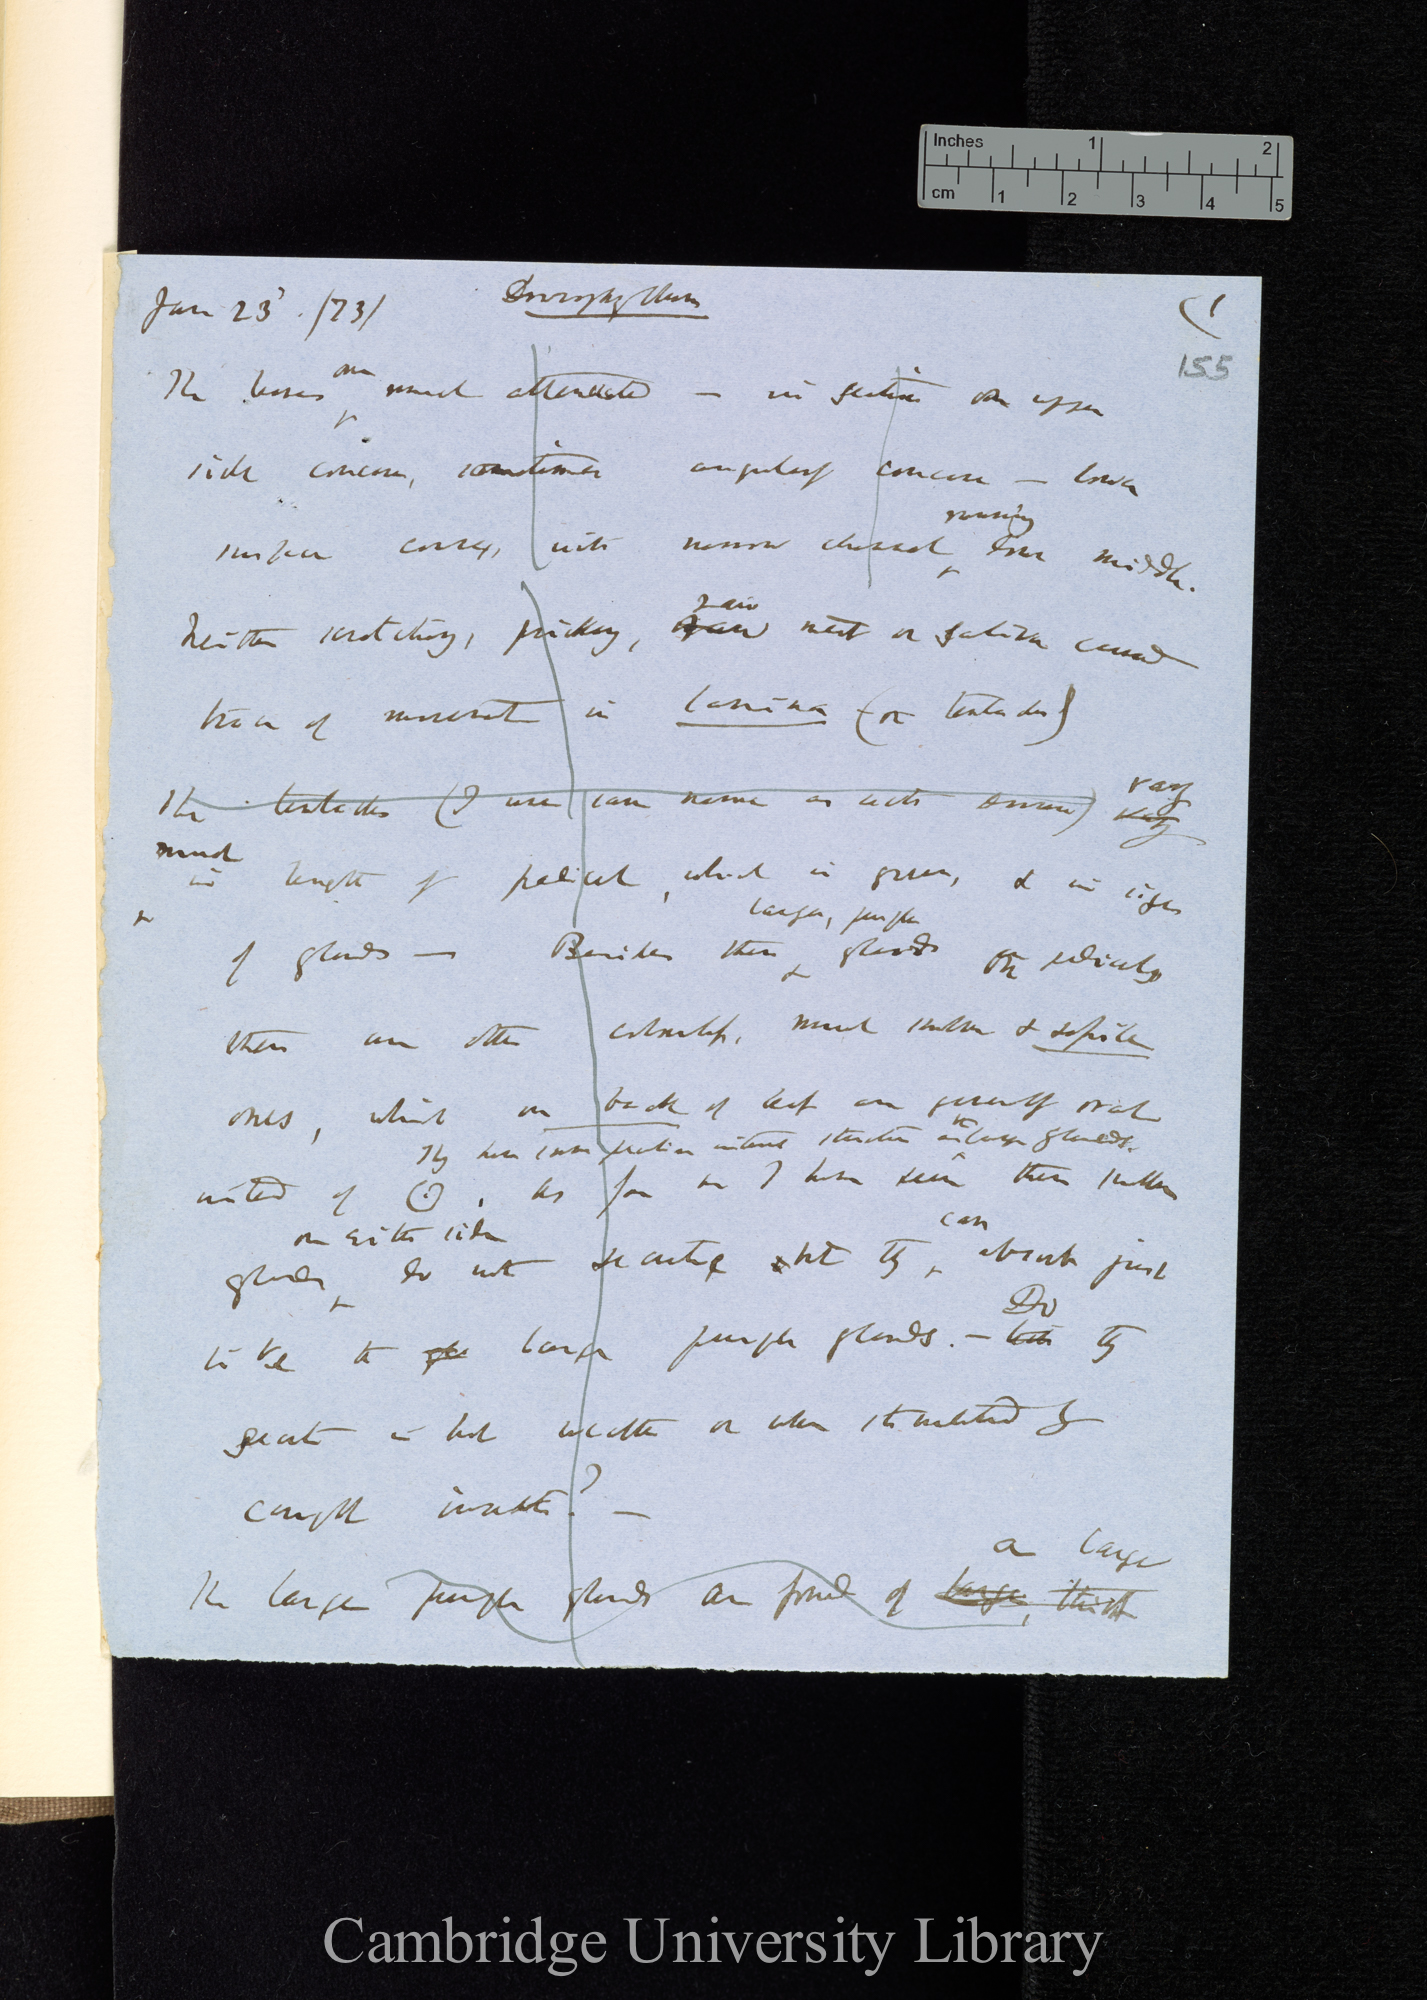 Inches 1 2
cm 1 2 3 4 5
Jan 23 /73/ Drosophyllum (1
155
The leaves are much attenuated — in section on upper
side concave, sometimes angularly concave — lower
running
surface convex, with narrow channel down middle.
rain
Neither scratching, pricking, raw meat or saliva caused
trace of movement in lamina (or tentacles)
The tentacles (I use same name as with Drosera) vary
very
much
in length of pedicel, which is green, & in size
larger, purple
of glands — Besides these glands on pedicels
there are other colourless, much smaller & sessile
ones, which on back of leaf are generally oval
They have same structure as large glands.
instead of ⊙, As far as I have seen these smaller
on either side can
glands do not secrete but they absorb just
Do
like the large purple glands. — they
secrete in hot weather or when stimulated by
caught insects? —
a large
The large purple glands are formed of large, thick
Cambridge University Library